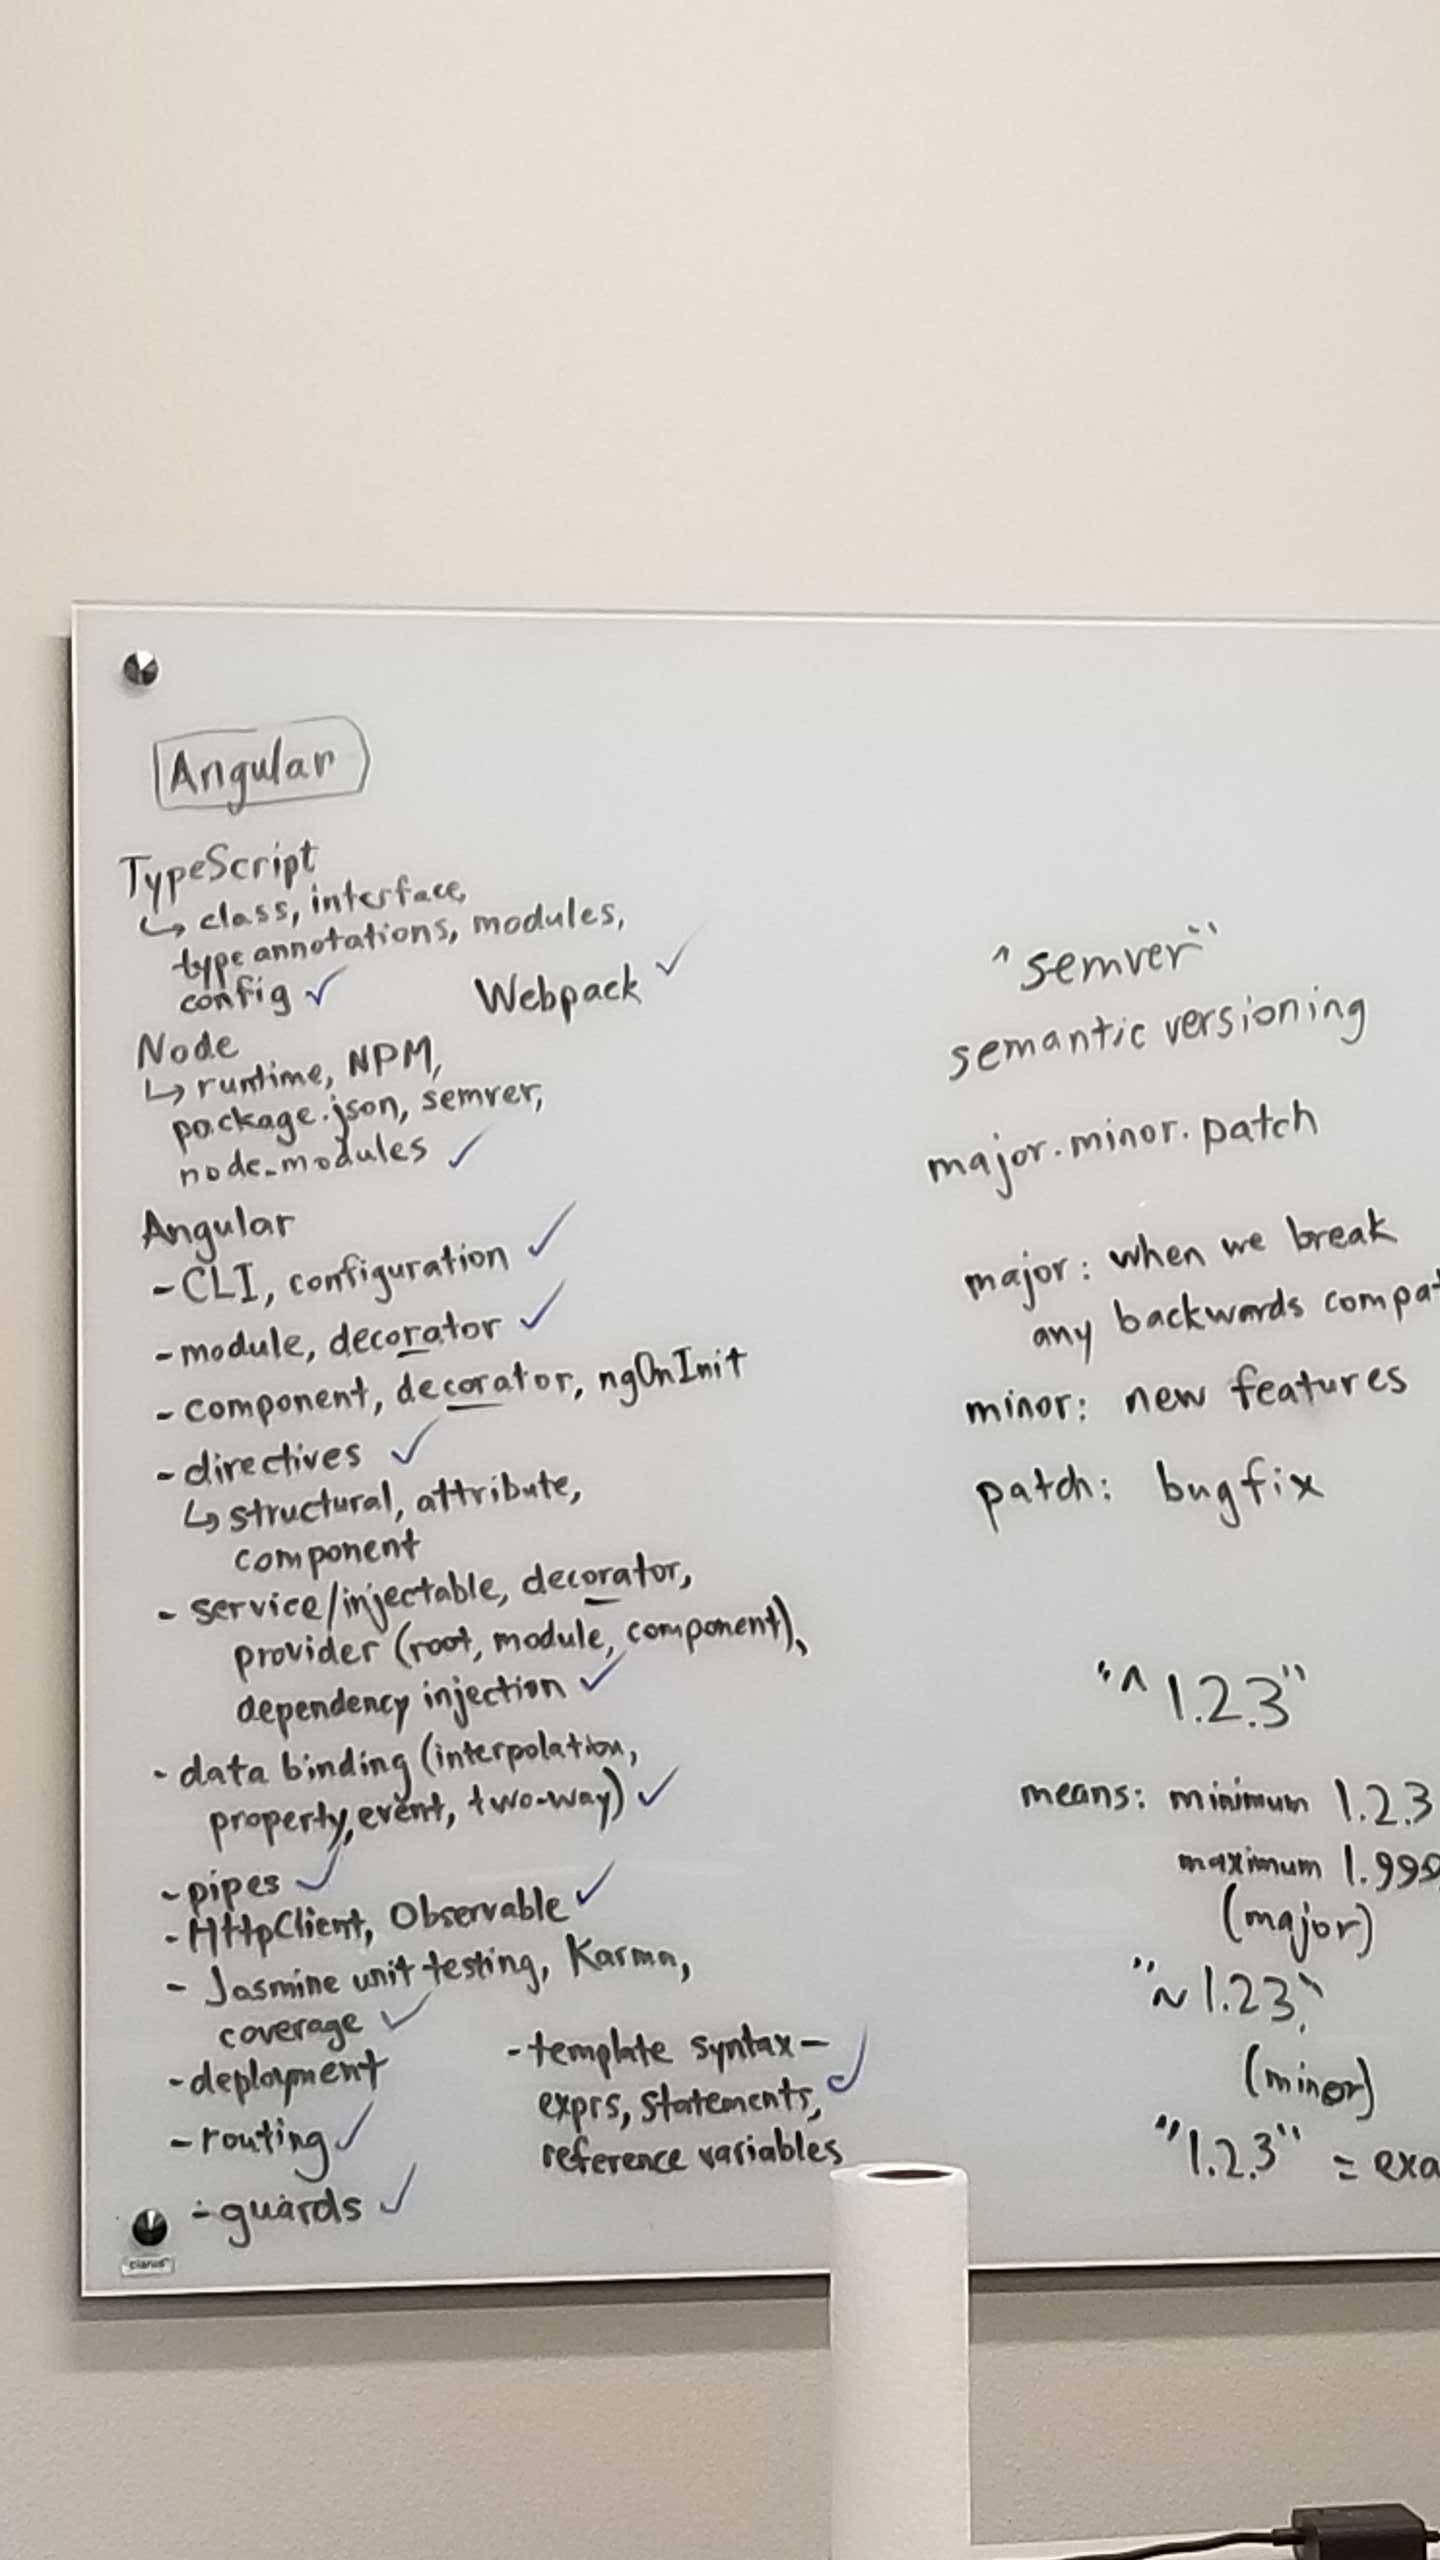 Angular
TypeScript
↳ class, interface,
type annotations, modules,
config ✓
Webpack ✓
Node
↳ runtime, NPM,
package.json, semver,
node_modules ✓
Angular
- CLI, configuration ✓
- module, decorator ✓
- component, decorator, ngOnInit
- directives ✓
↳ structural, attribute,
component
- service/injectable, decorator,
provider (root, module, component),
dependency injection ✓
- data binding (interpolation,
property, event, two-way) ✓
- pipes ✓
- HttpClient, Observable ✓
- Jasmine unit testing, Karma,
coverage ✓
- deployment
- routing ✓
- guards ✓
- template syntax - ✓
exprs, statements,
reference variables
clarus
"semver"
semantic versioning
major.minor.patch
major: when we break
any backwards compat
minor: new features
patch: bugfix
"^1.2.3"
means: minimum 1.2.3
maximum 1.999
(major)
"~1.2.3"
(minor)
"1.2.3" = exa